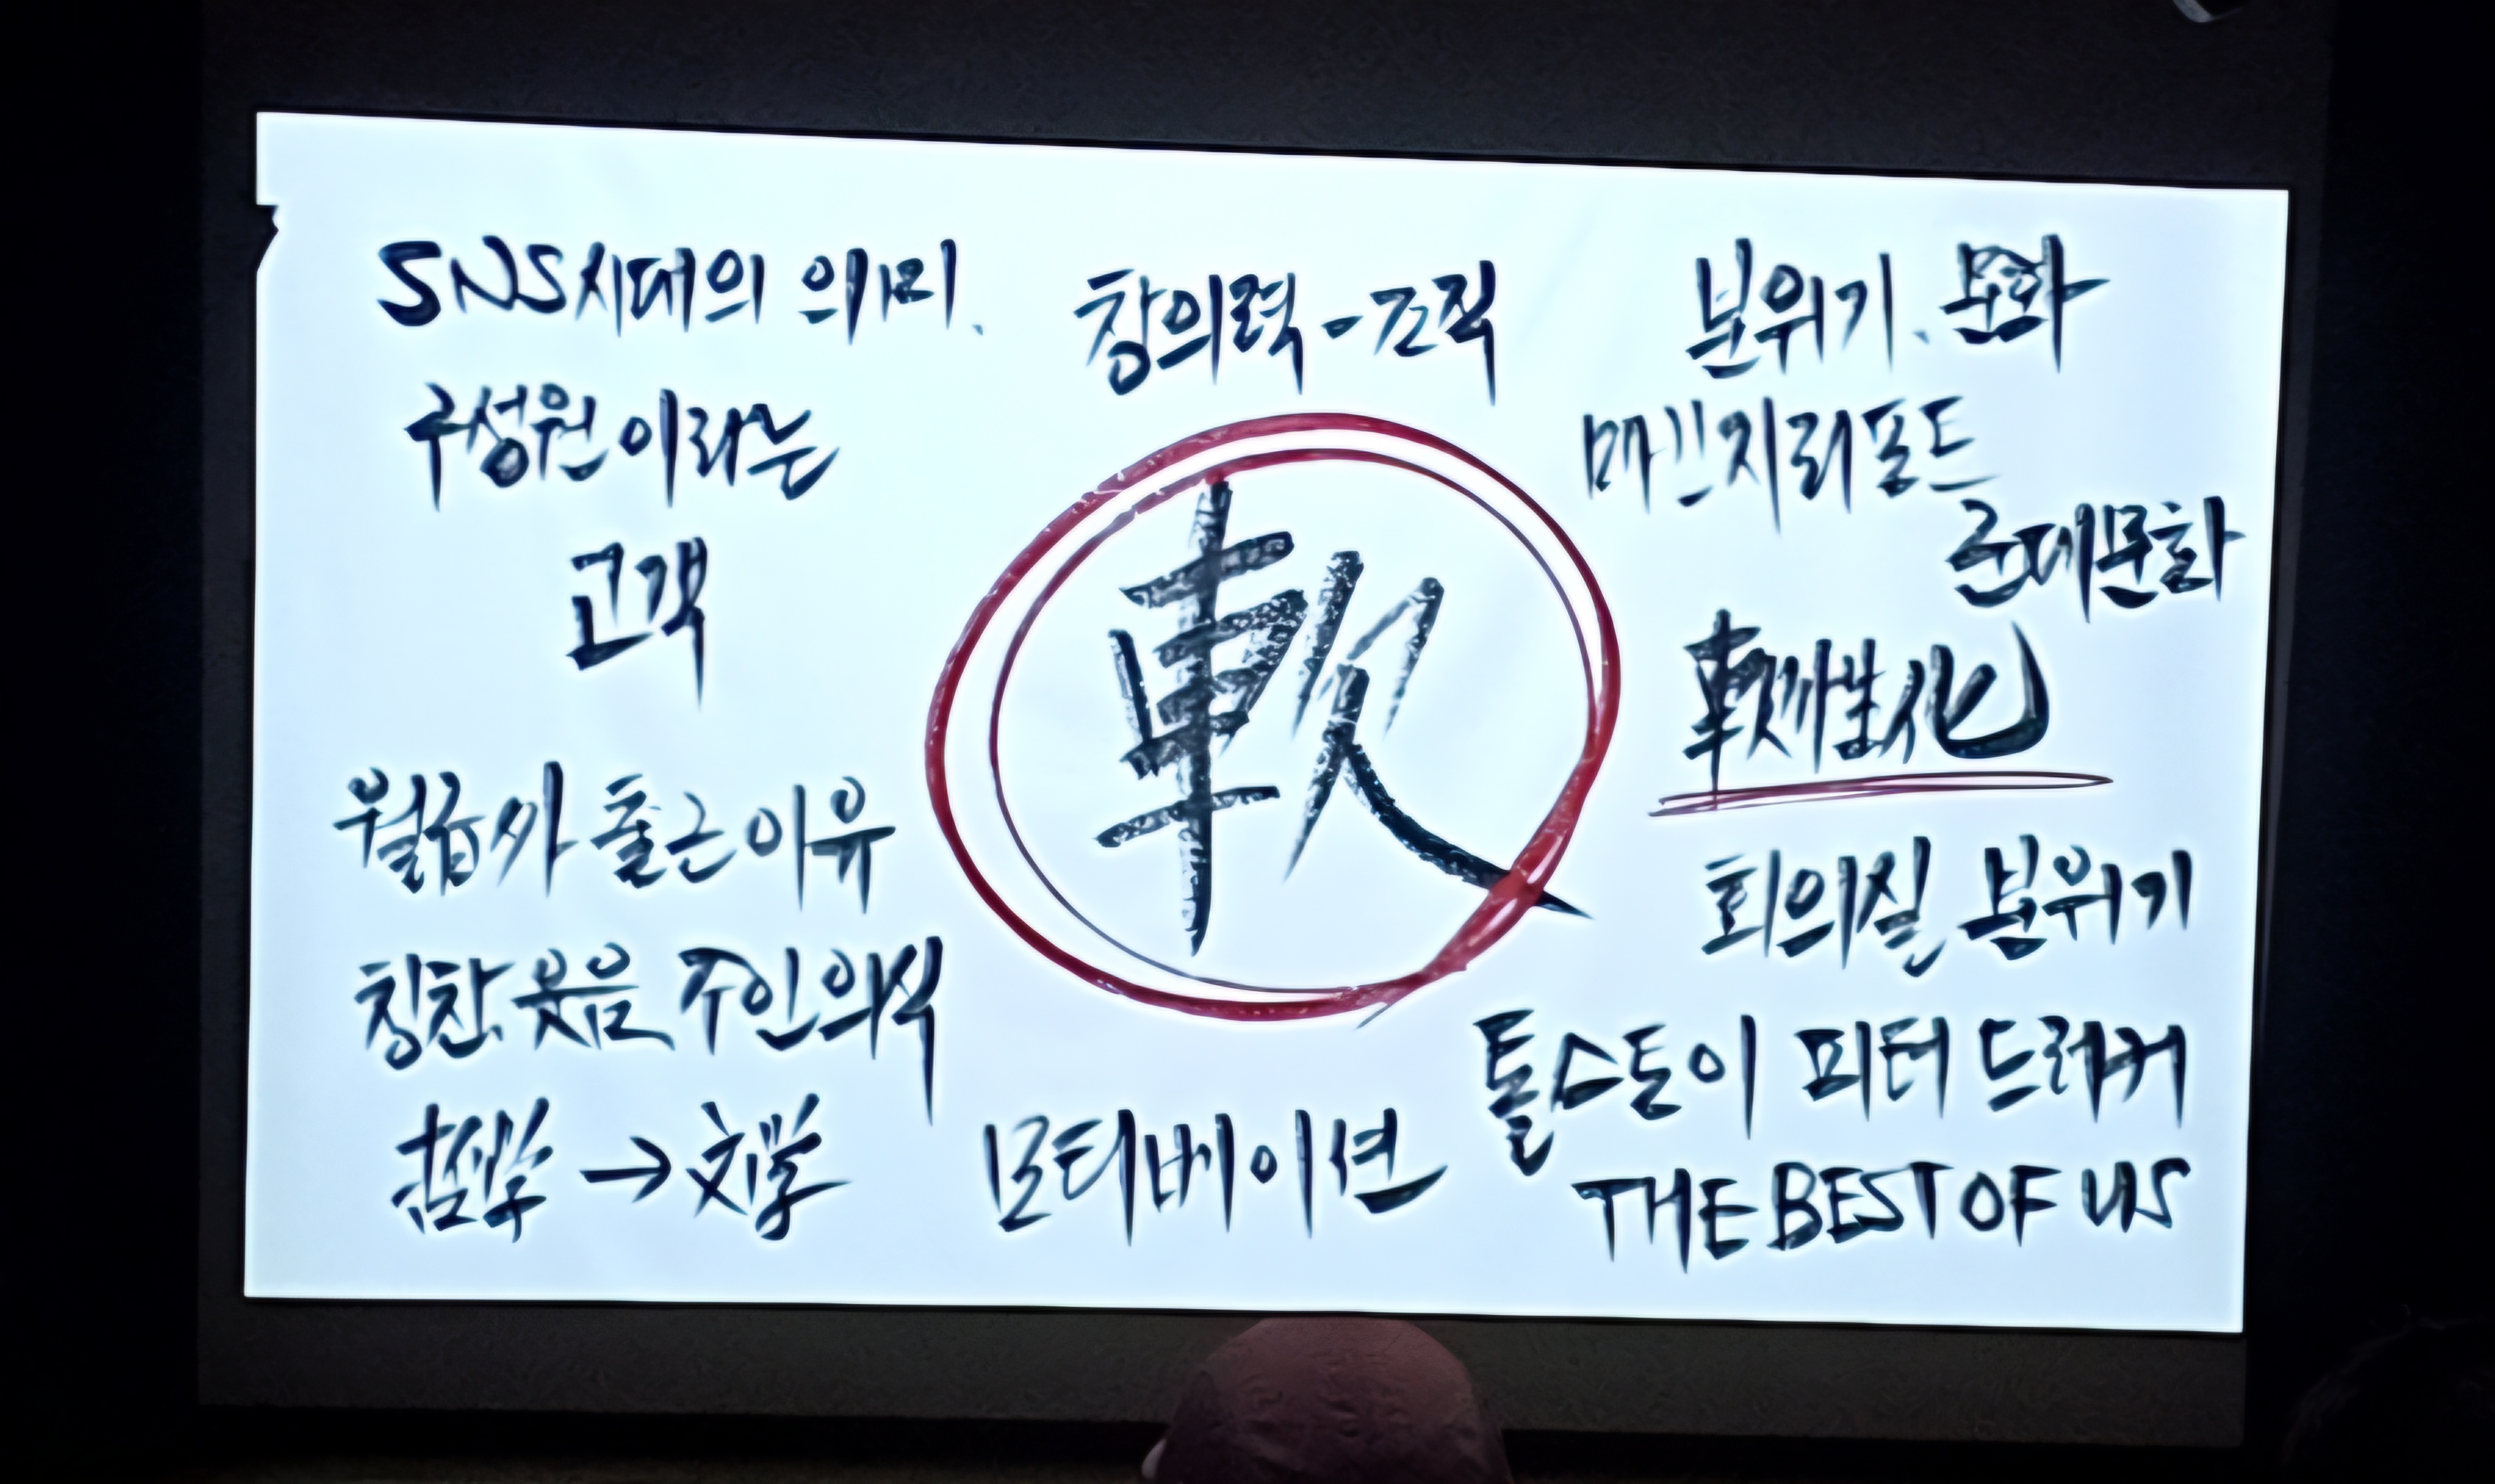 SNS시대의 의미.
구성원이라는
고객
창의력-조직
분위기. 문화
매킨지리포트
군대문화
軟
軟性化
회의실 분위기
월급 출근이유
칭찬 웃음 주인의식
哲学→文学
모티베이션
톨스토이 피터 드러커
THE BEST OF US